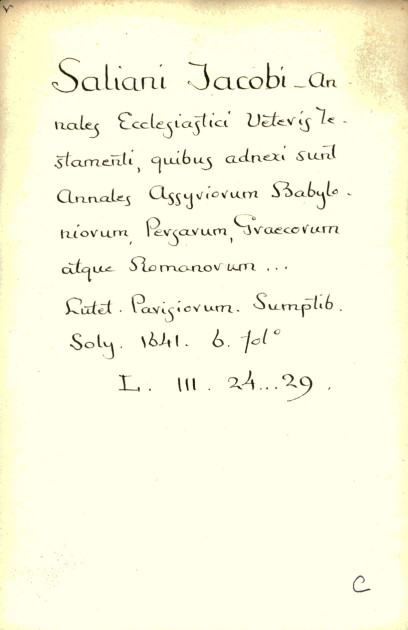 Saliani Jacobi - An
nales Ecclesiastici Veteris Te-
stamenti, quibus adnexi sunt
Annales Assyriorum Babylo-
niorum, Persarum, Graecorum
atque Romanorum ...
Lutet. Parisiorum. Sumptib.
Soly. 1641. 6. fol°
L. III. 24...29.
C